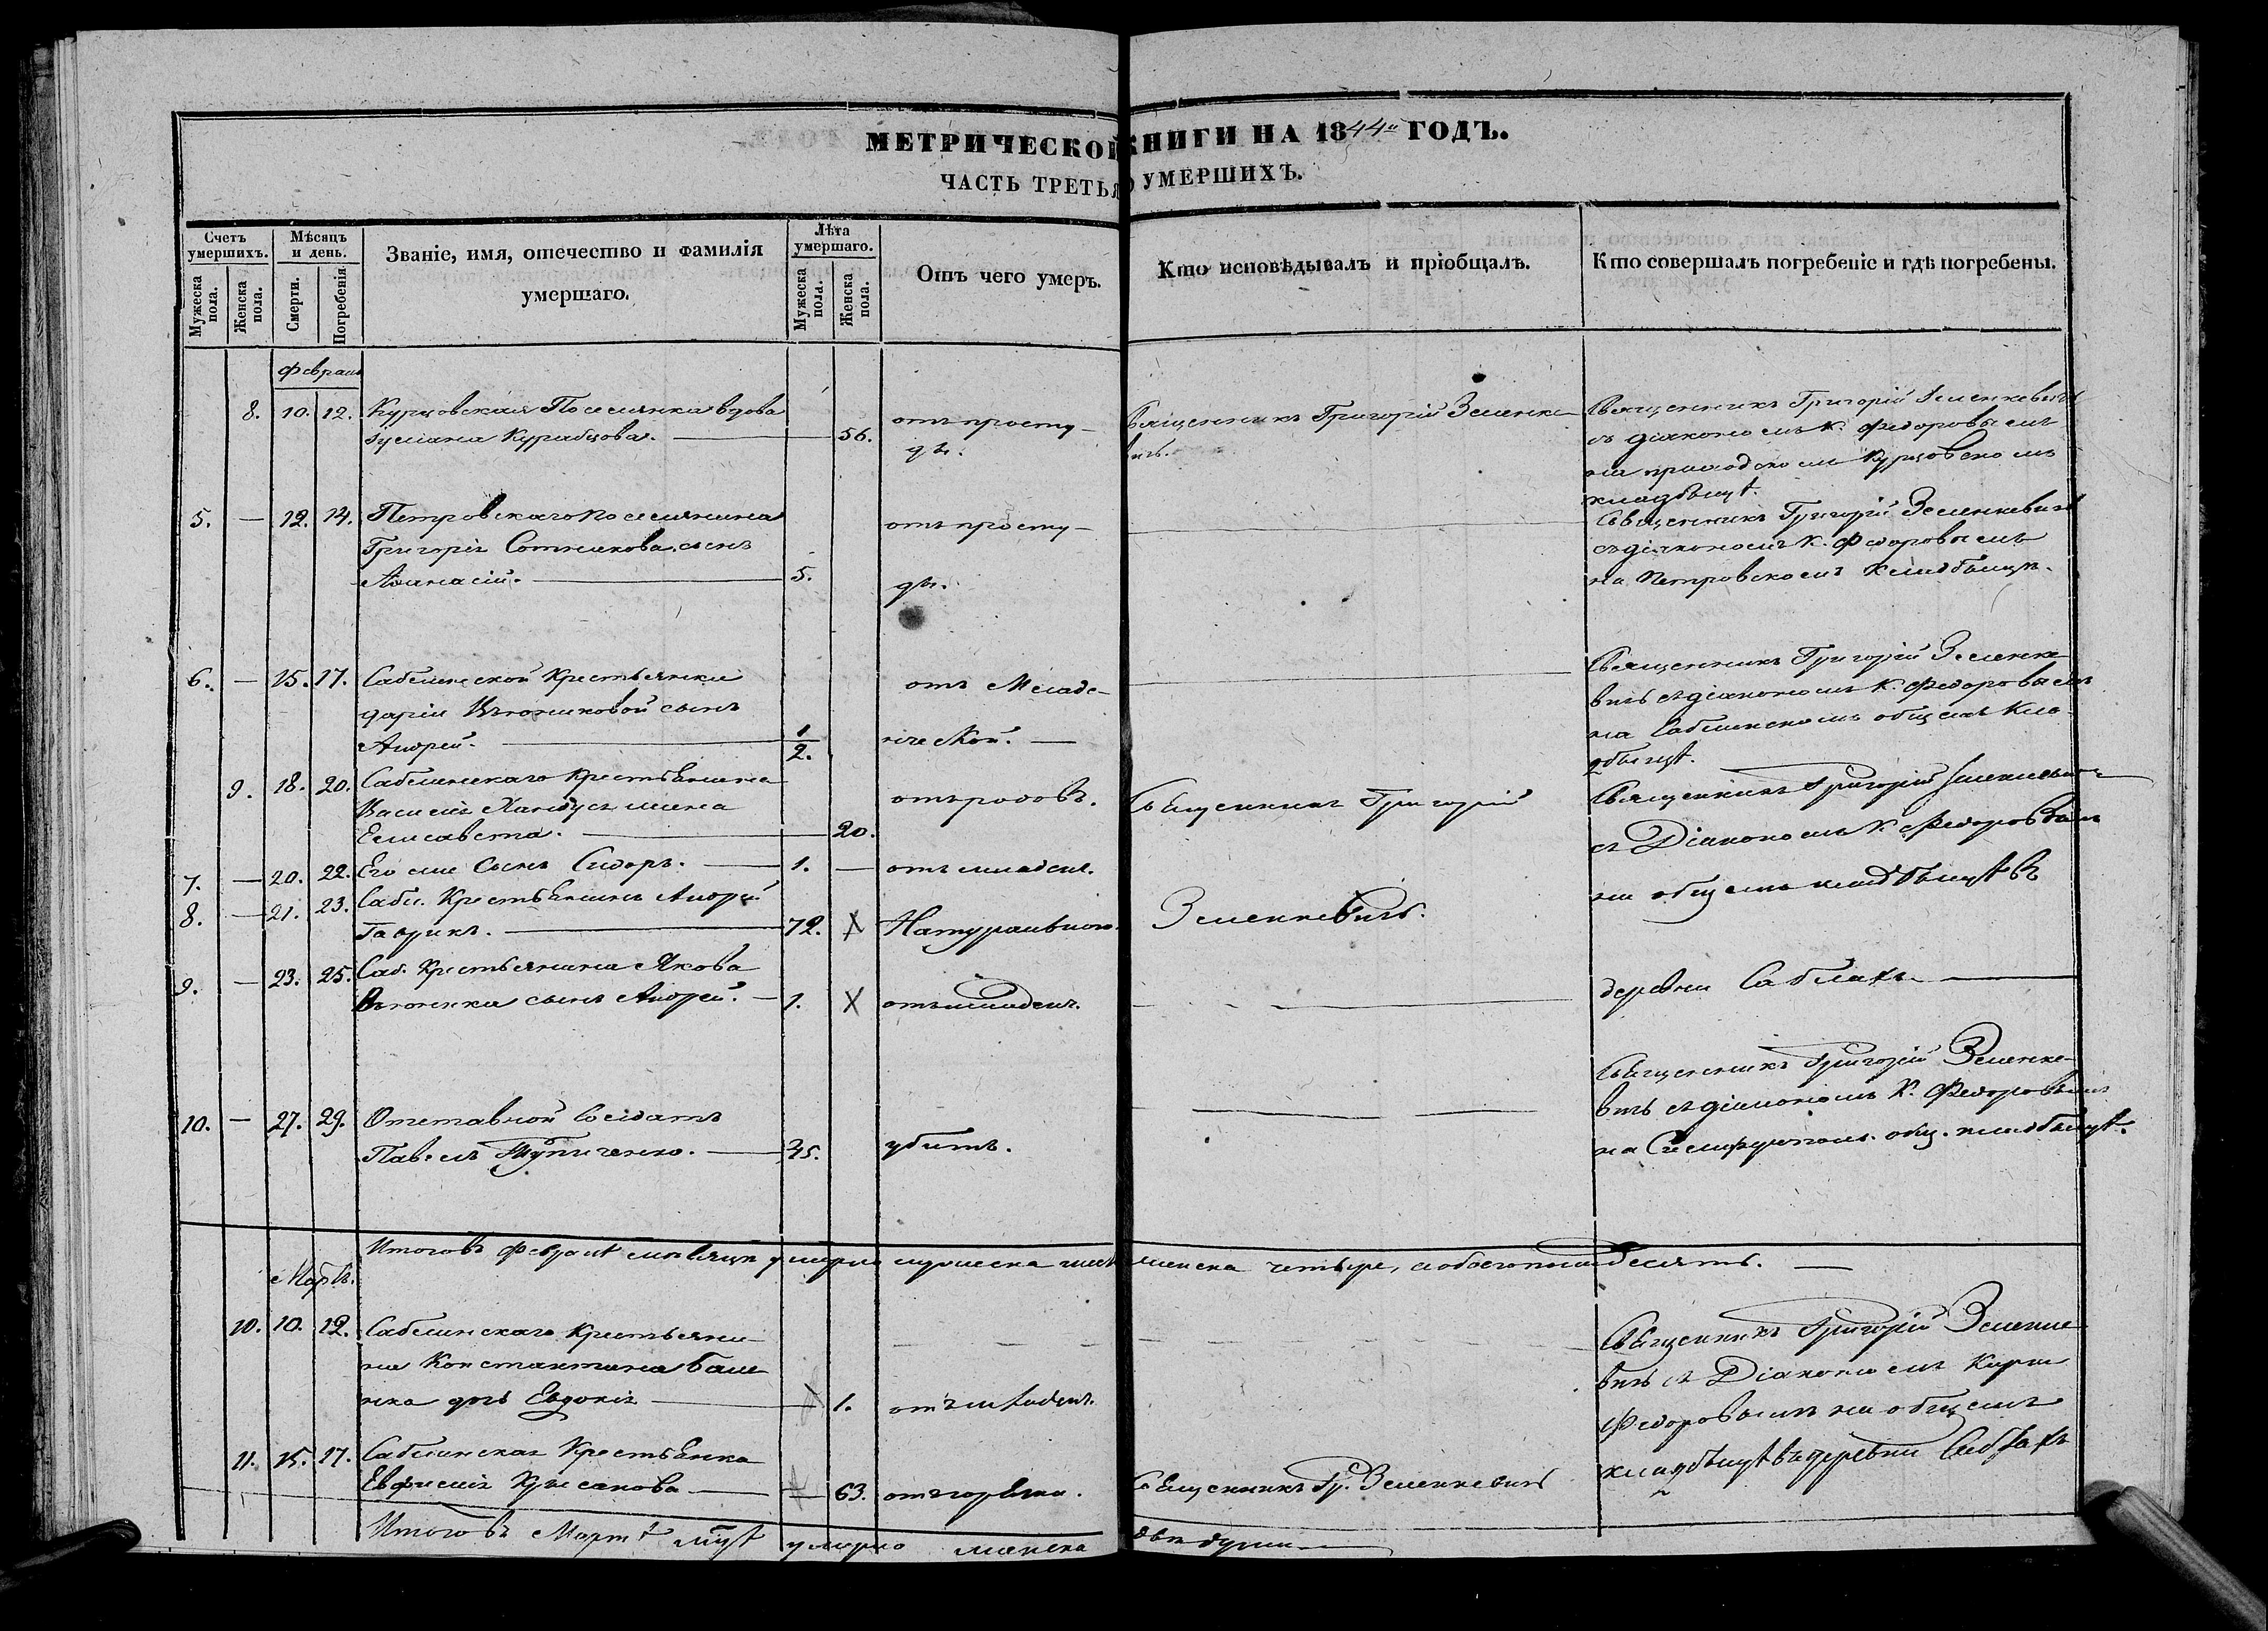 МЕТРИЧЕСКОЙ КНИГИ НА 1844й ГОДЪ.
ЧАСТЬ ТРЕТЬЯ О УМЕРШИХЪ.
Счетъ умершихъ.
Мужеска пола.
Женска пола.
Мѣсяцъ и день.
Смерти.
Погребенія.
Званіе, имя, отечество и фамилія
умершаго.
Лѣта умершаго.
Мужеска пола.
Женска пола.
Отъ чего умеръ.
Кто исповѣдывалъ и пріобщалъ.
Кто совершалъ погребеніе и гдѣ погребены.
Февраль
8. 10. 12. Курцовская Поселянка вдова
56.
отъ просту-
дъ.
Священникъ Григорій Зеленке-
вичь.
Священникъ Григорій Зеленкевичь
съ діакономъ К. Федоровымъ
на приходскомъ Курцовскомъ
кладбищѣ.
5. — 12. 14. Петровскаго поселянина
Григорія Сотникова сынъ
Афанасій. — 5.
отъ просту-
дъ.
Священникъ Григорій Зеленкевичь
съ діакономъ К. Федоровымъ
на Петровскомъ кладбищѣ.
6. — 15. 17. Саблинской Крестьянки
Даріи сынъ
Андрей. — 1/2.
отъ Младе-
нческой. —
Священникъ Григорій Зеленке-
вичь съ діакономъ К. Федоровымъ
на Саблинскомъ общемъ кла-
дбищѣ.
9. 18. 20. Саблинскаго Крестьянина
Василія жена
Елисавета. — 20.
отъ родовъ.
Священникъ Григорій
Священникъ Григорій Зеленкевичь
съ Діакономъ К. Федоровымъ
7. — 20. 22. Его же Сынъ Сидоръ. — 1. —
отъ младен.
на общемъ кладбищѣ въ
8. — 21. 23. Сабл. Крестьянинъ Андрей
Гаврикъ. — 72. X Натурально.
Зеленкевичь.
9. — 23. 25. Саб. Крестьянина Якова
сынъ Андрей. — 1. X отъ младен.
деревни Саблахъ —
10. — 27. 29. Отставной Солдатъ
Павелъ — 35. убитъ.
Священникъ Григорій Зеленке-
вичь съ діакономъ К. Федоровымъ
на Симферопол. общ. кладбищѣ.
Итого въ Февралѣ мѣсяцѣ умерло мужеска женска четыре, а обоего пола десять. —
Мартъ.
10. 10. 12. Саблинскаго Крестьяни-
на Константина
дочь Евдокія — 1. отъ младен.
Священникъ Григорій Зеленке-
вичь съ Діакономъ
Федоровымъ на общемъ
кладбищѣ въ деревни Саблахъ
11. 15. 17. Саблинская Крестьянка
Евфимія — 63. отъ горячки.
Священникъ Гр. Зеленкевичь
Итого въ Мартѣ мцѣ умерло женска двѣ души —